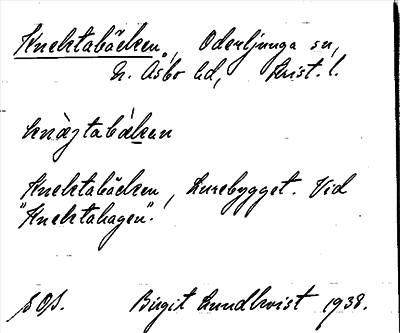 Knektabäcken, Oderljunga sn,
N. Åsbo hd, Krist. l.
knæ̀ktabǽkan
Knektabäcken, Lurebygget. Vid
"Knektahagen".
SOS. Birgit Lundkvist 1938.